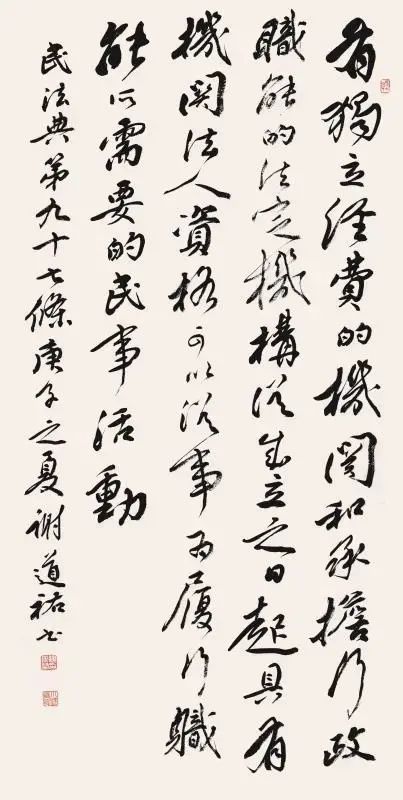 有獨立经費的機関和承擔行政
職能的法定機構從成立之日起具有
機関法人資格可以從事為履行職
能所需要的民事活動
民法典第九十七條庚子之夏谢道祐书